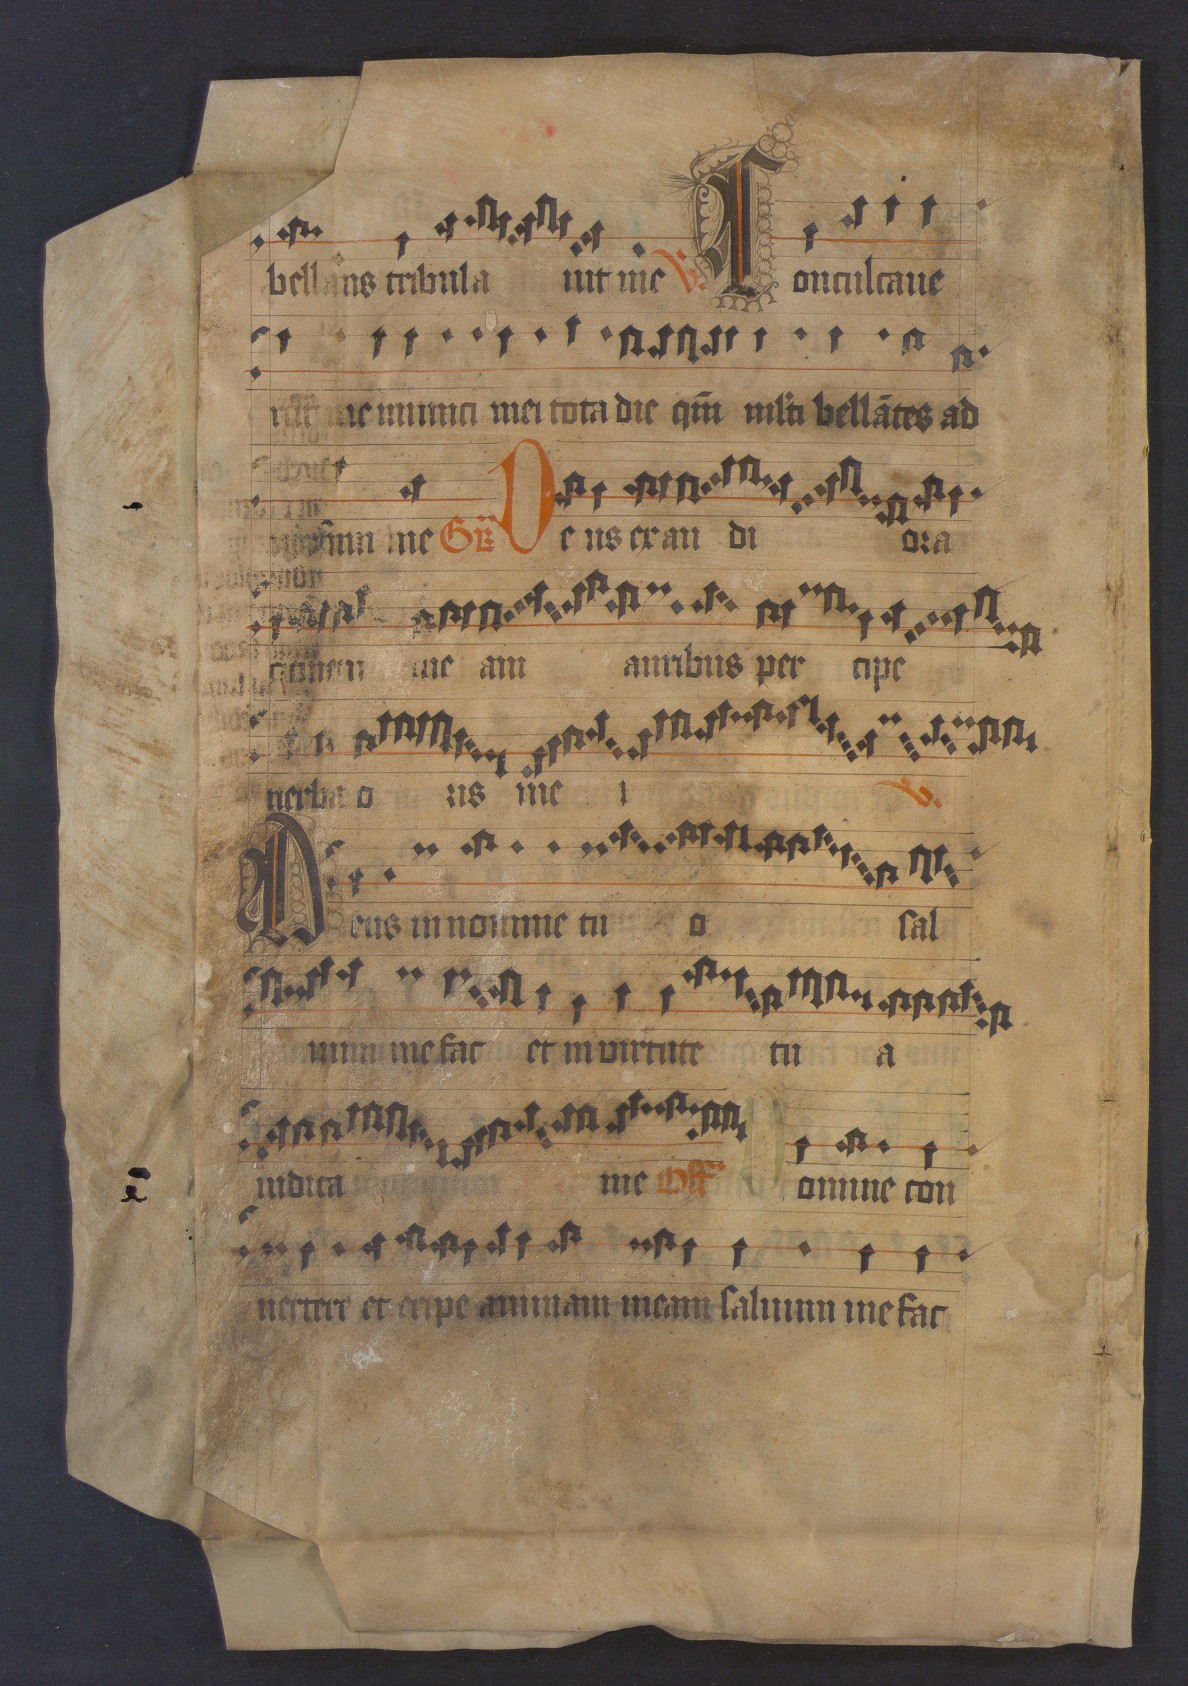 bellans tribula uit me V. Conculcaue
runt me inimici mei tota die qm̄ mlti bellātes ad
uersum me Gr̄ Deus exau di ora
cionem me am auribus per cipe
uerba o ris me i V.
Deus in nomine tu o sal
uum me fac et in virtute tu a
iudica me Off Domine con
uertere et eripe animam meam saluum me fac